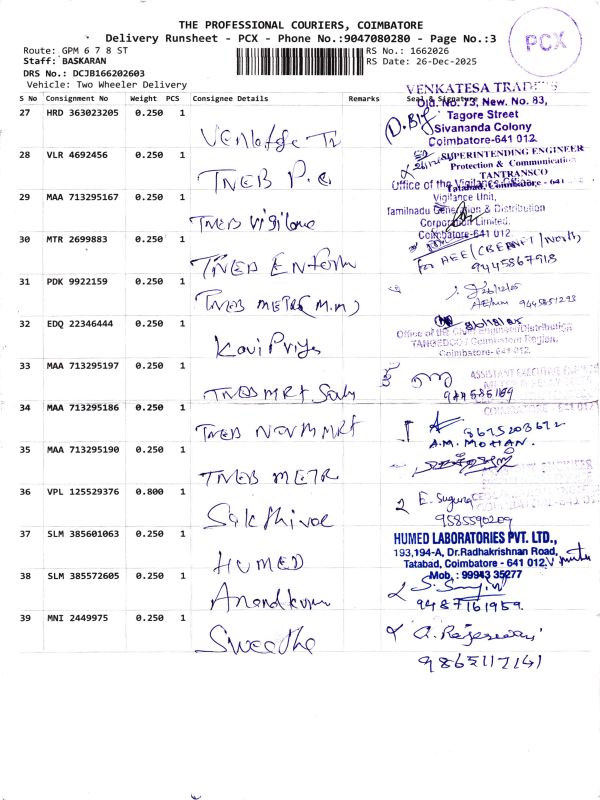 THE PROFESSIONAL COURIERS, COIMBATORE
Delivery Runsheet - PCX - Phone No.:9047080280 - Page No.:3
PCX
Route: GPM 6 7 8 ST
RS No.: 1662026
Staff: BASKARAN
RS Date: 26-Dec-2025
DRS No.: DCJB166202603
Vehicle: Two Wheeler Delivery
S No Consignment No Weight PCS Consignee Details Remarks Seal & Signature
VENKATESA TRADERS
Old. No. 73, New. No. 83,
Tagore Street
Sivananda Colony
Coimbatore-641 012
27 HRD 363023205 0.250 1
28 VLR 4692456 0.250 1 TNEB P.C
SUPERINTENDING ENGINEER
Protection & Communication
TANTRANSCO
Tatabad, Coimbatore - 641
29 MAA 713295167 0.250 1 TNEB Vigilance
Office of the Vigilance Officer
Vigilance Unit,
Tamilnadu Generation & Distribution
Corporation Limited.
Coimbatore-641 012.
30 MTR 2699883 0.250 1 TNEB
For AEE/ /North,
9445867918
31 PDK 9922159 0.250 1 TNEB METR (M.M)
9445851293
32 EDQ 22346444 0.250 1 Kavi Priya
Office of the Chief Engineer/Distribution
TANGEDCO / Coimbatore Region,
Coimbatore- 641 012.
33 MAA 713295197 0.250 1 TNEB MRT
ASSISTANT EXECUTIVE ENGINEER
34 MAA 713295186 0.250 1 TNEB MRT
COIMBATORE - 641 012
8675203672
A.M. MOHAN.
35 MAA 713295190 0.250 1 TNEB METR
36 VPL 125529376 0.800 1 Sakthivel
E. Suguna
9585590209
37 SLM 385601063 0.250 1 HUMED
HUMED LABORATORIES PVT. LTD.,
193,194-A, Dr.Radhakrishnan Road,
Tatabad, Coimbatore - 641 012.
Mob, : 99943 35277
38 SLM 385572605 0.250 1 Anandkumar
9487161959.
39 MNI 2449975 0.250 1 Swedha
A. Rajeswari
9865117141